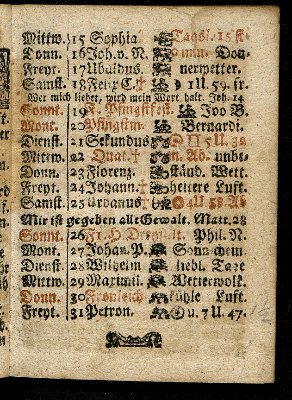 Mittw. 15 Sophia Tagsl. 15 st
Donn. 16 Joh. v. N. 0 min. Don-
Freyt. 17 Ubaldus. nerwetter.
Samst. 18 Felix C. † 9 1 U. 59. fr.
Wer mich liebet, wird mein Wort halt. Joh. 14
Sonnt. 19 F. Pfingstfest. Ivo B.
Mont. 20 Pfingstm. Bernardt.
Dienst. 21 Sekundus 5 U. 32
Mittw. 22 Quat. † Ab. unbe-
Donn. 23 Florenz. ständ. Wett.
Freyt. 24 Johann. † heitere Luft.
Samst. 25 Urbanus † U. 58 Ab
Mir ist gegeben alle Gewalt. Matt. 28
Sonnt. 26 F. H. Dreyfalt. Phil. N.
Mont. 27 Johan. P. Sonnschein
Dienst. 28 Wilhelm liebl. Tage
Mittw. 29 Maximil. Wetterwolk.
Donn. 30 Fronleich kühle Luft.
Freyt. 31 Petron. u. 7 U. 47.